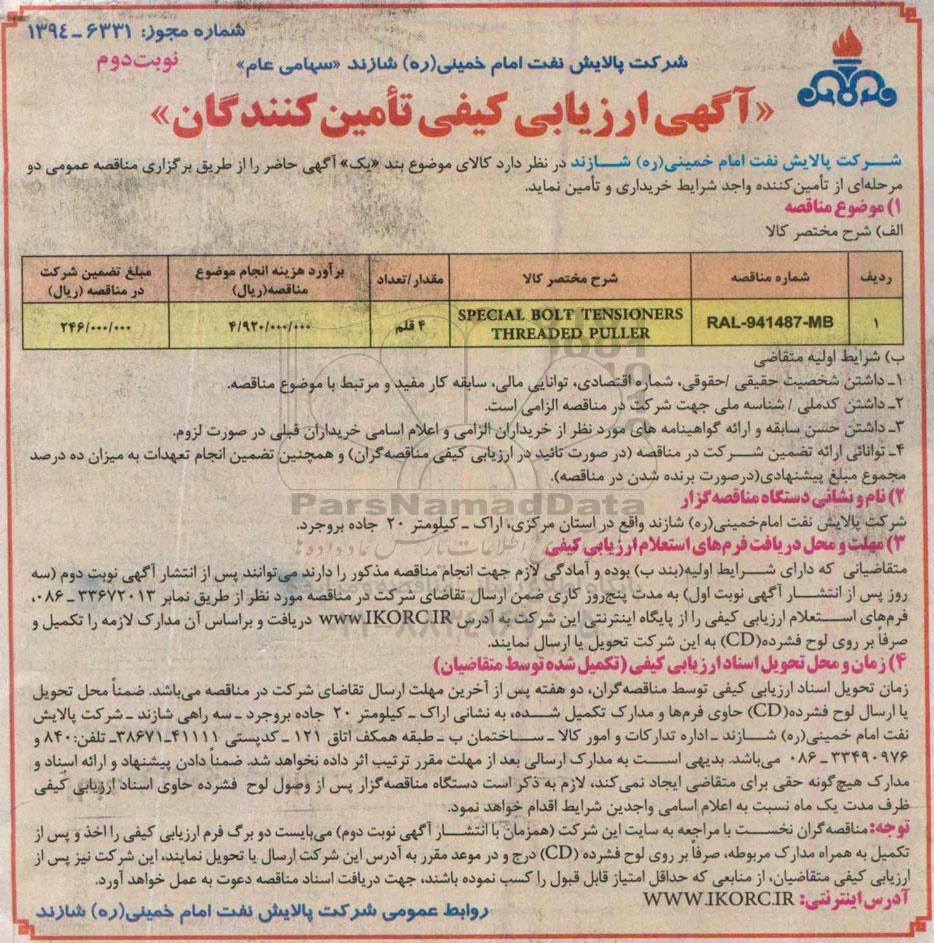 شماره مجوز: ۶۳۳۱ـ۱۳۹۴
نوبت دوم
شرکت پالایش نفت امام خمینی(ره) شازند «سهامی عام»
«آگهی ارزیابی کیفی تأمین کنندگان»
شــرکت پالایش نفت امام خمینی(ره) شــازند در نظر دارد کالای موضوع بند «یک» آگهی حاضر را از طریق برگزاری مناقصه عمومی دو
مرحله‌ای از تأمین‌کننده واجد شرایط خریداری و تأمین نماید.
۱) موضوع مناقصه
الف) شرح مختصر کالا
ردیف شماره مناقصه شرح مختصر کالا مقدار/تعداد برآورد هزینه انجام موضوع مناقصه(ریال) مبلغ تضمین شرکت در مناقصه (ریال)
۱ RAL-941487-MB SPECIAL BOLT TENSIONERS THREADED PULLER ۴ قلم ۴/۹۲۰/۰۰۰/۰۰۰ ۲۴۶/۰۰۰/۰۰۰
ب) شرایط اولیه متقاضی
۱ـ داشتن شخصیت حقیقی /حقوقی، شماره اقتصادی، توانایی مالی، سابقه کار مفید و مرتبط با موضوع مناقصه.
۲ـ داشتن کدملی / شناسه ملی جهت شرکت در مناقصه الزامی است.
۳ـ داشتن حسن سابقه و ارائه گواهینامه های مورد نظر از خریداران الزامی و اعلام اسامی خریداران قبلی در صورت لزوم.
۴ـ توانائی ارائه تضمین شــرکت در مناقصه (در صورت تائید در ارزیابی کیفی مناقصه‌گران) و همچنین تضمین انجام تعهدات به میزان ده درصد
مجموع مبلغ پیشنهادی(درصورت برنده شدن در مناقصه).
ParsNamadData
۲) نام و نشانی دستگاه مناقصه‌گزار
شرکت پالایش نفت امام‌خمینی(ره) شازند واقع در استان مرکزی، اراک ـ کیلومتر ۲۰ جاده بروجرد.
۳) مهلت و محل دریافت فرم‌های استعلام ارزیابی کیفی
متقاضیانی که دارای شــرایط اولیه(بند ب) بوده و آمادگی لازم جهت انجام مناقصه مذکور را دارند می‌توانند پس از انتشار آگهی نوبت دوم (سه
روز پس از انتشــار آگهی نوبت اول) به مدت پنج‌روز کاری ضمن ارسال تقاضای شرکت در مناقصه مورد نظر از طریق نمابر ۳۳۶۷۲۰۱۳ ـ ۰۸۶،
فرم‌های اســتعلام ارزیابی کیفی را از پایگاه اینترنتی این شرکت به آدرس WWW.IKORC.IR دریافت و براساس آن مدارک لازمه را تکمیل و
صرفاً بر روی لوح فشرده(CD) به این شرکت تحویل یا ارسال نمایند.
۴) زمان و محل تحویل اسناد ارزیابی کیفی (تکمیل شده توسط متقاضیان)
زمان تحویل اسناد ارزیابی کیفی توسط مناقصه‌گران، دو هفته پس از آخرین مهلت ارسال تقاضای شرکت در مناقصه می‌باشد. ضمناً محل تحویل
یا ارسال لوح فشرده(CD) حاوی فرم‌ها و مدارک تکمیل شــده، به نشانی اراک ـ کیلومتر ۲۰ جاده بروجرد ـ سه راهی شازند ـ شرکت پالایش
نفت امام خمینی(ره) شــازند ـ اداره تدارکات و امور کالا ـ ســاختمان ب ـ طبقه همکف اتاق ۱۲۱ ـ کدپستی ۴۱۱۱۱ـ۳۸۶۷۱ـ تلفن: ۸۴۰ و
۳۳۴۹۰۹۷۶ ـ ۰۸۶ می‌باشد. بدیهی اســت به مدارک ارسالی بعد از مهلت مقرر ترتیب اثر داده نخواهد شد. ضمناً دادن پیشنهاد و ارائه اسناد و
مدارک هیچ‌گونه حقی برای متقاضی ایجاد نمی‌کند، لازم به ذکر است دستگاه مناقصه‌گزار پس از وصول لوح فشرده حاوی اسناد ارزیابی کیفی
ظرف مدت یک ماه نسبت به اعلام اسامی واجدین شرایط اقدام خواهد نمود.
توجه: مناقصه‌گران نخســت با مراجعه به سایت این شرکت (همزمان با انتشــار آگهی نوبت دوم) می‌بایست دو برگ فرم ارزیابی کیفی را اخذ و پس از
تکمیل به همراه مدارک مربوطه، صرفاً بر روی لوح فشرده (CD) درج و در موعد مقرر به آدرس این شرکت ارسال یا تحویل نمایند، این شرکت نیز پس از
ارزیابی کیفی متقاضیان، از منابعی که حداقل امتیاز قابل قبول را کسب نموده باشند، جهت دریافت اسناد مناقصه دعوت به عمل خواهد آورد.
آدرس اینترنتی: WWW.IKORC.IR
روابط عمومی شرکت پالایش نفت امام خمینی(ره) شازند